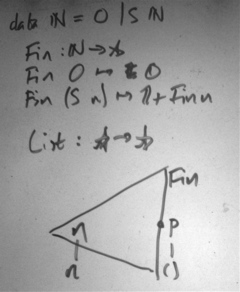 data ℕ = O | S ℕ
Fin : ℕ → ⋆
Fin O ↦ 𝟘
Fin (S n) ↦ 𝟙 + Fin n
List : ⋆ → ⋆
Fin
n
P
n
()